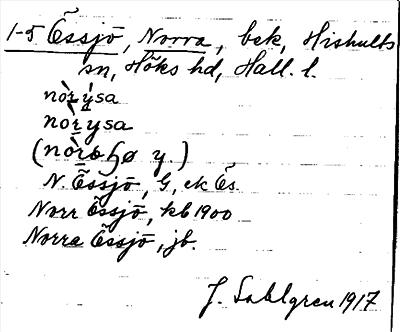 1-5 Õssjö, Norra, bek, Hishults
sn, Höks hd, Hall. l.
nòrýsa
norysa
(nòro y.)
N. Õssjö, G, ek Õs
Norr Õssjö, kb 1900
Norra Õssjö, jb.
J. Sahlgren 1917